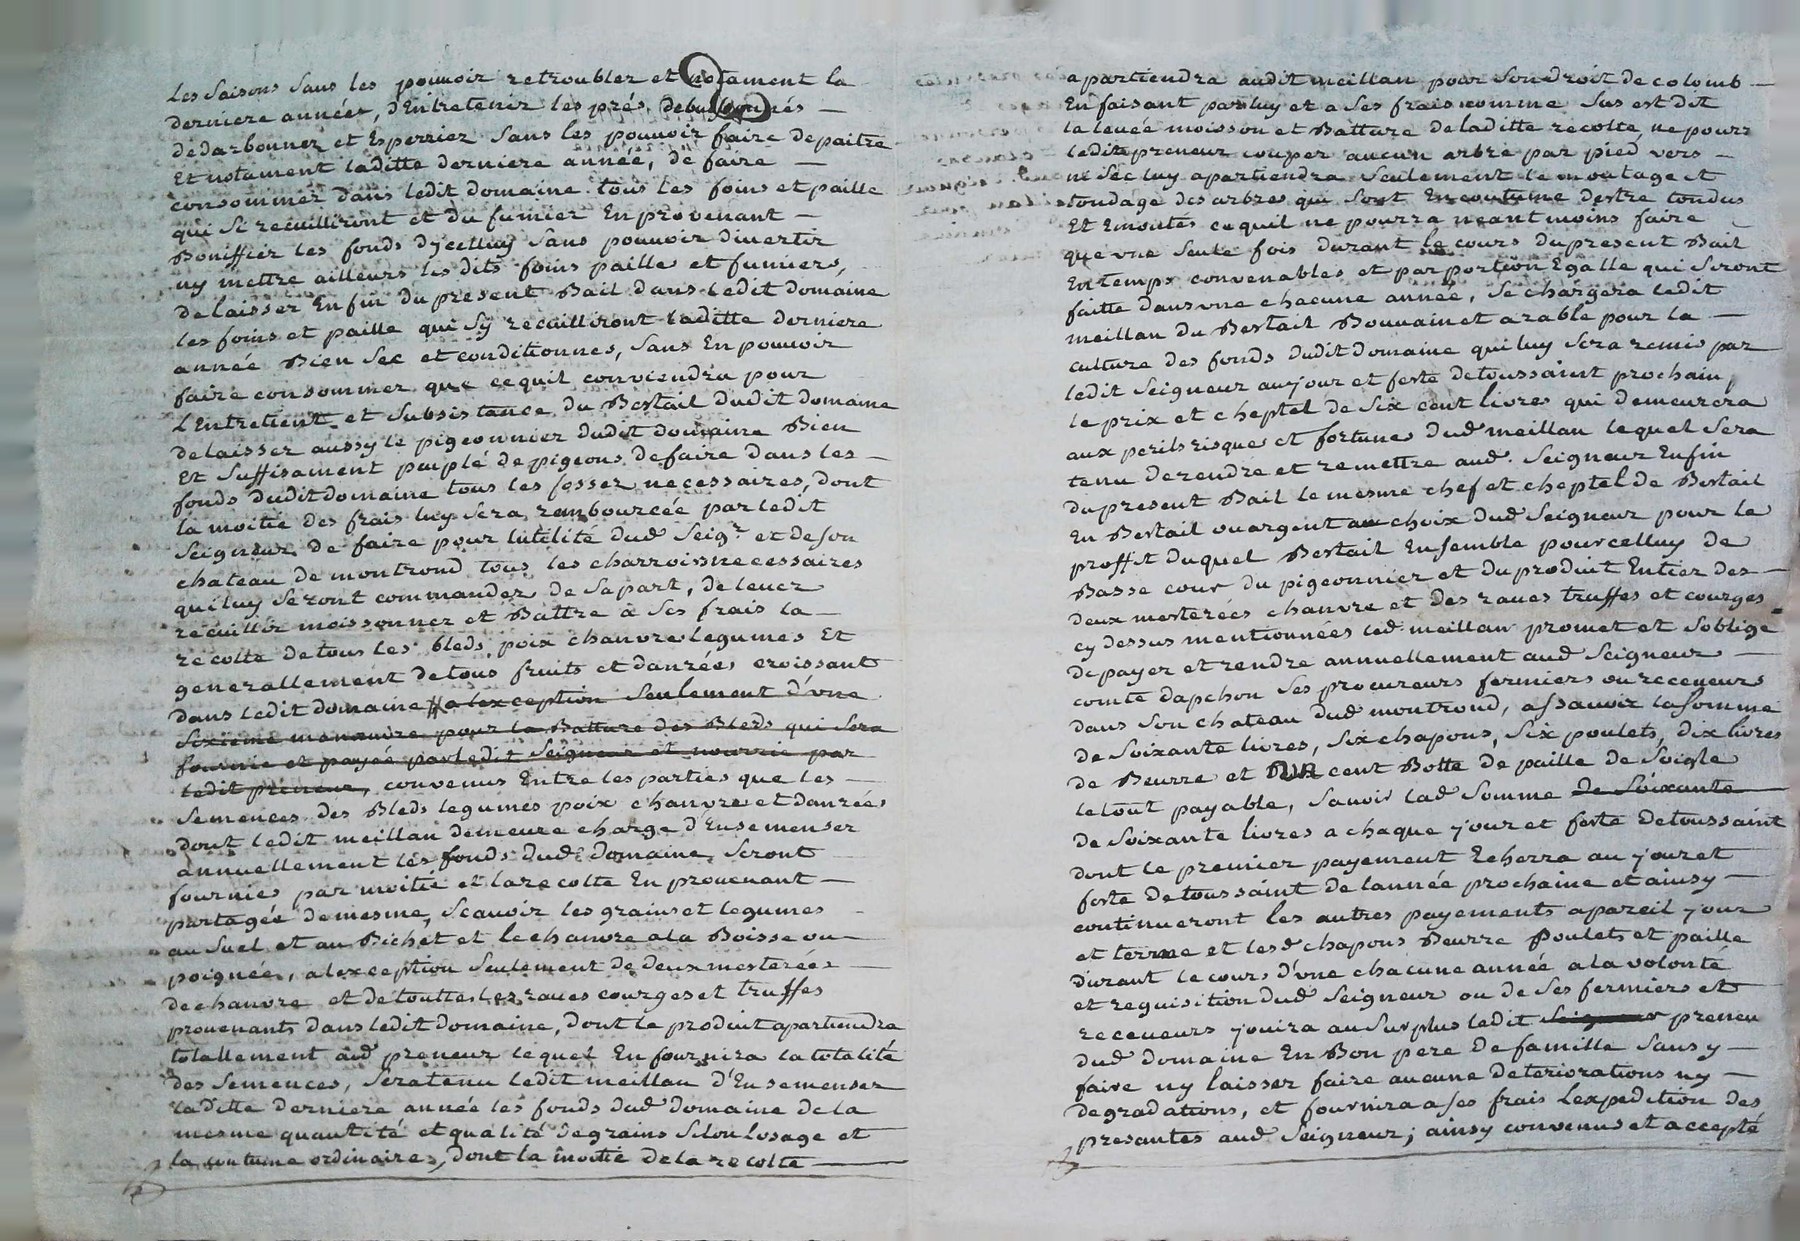 Les Saisons Sans les pouvoir retroubler et notament la
derniere année, d'Entretenir les prés debuissonnés
dedarbonner et Esperrier Sans les pouvoir faire depaitre
Et notament laditte derniere année, de faire
consommer dans ledit domaine tous les foins et paille
qui Si recuilliront et du fumier En provenant
Boniffier les fonds dycelluy Sans pouvoir divertir
ny mettre ailleurs les dits foins paille et fumiers,
delaisser En fin du present Bail dans ledit domaine
les foins et paille qui Sy recuilliront laditte derniere
année Bien Sec et conditionnes, Sans En pouvoir
faire consommer que cequil conviendra pour
L'Entretient et Subsistance du Bestail dudit domaine
delaisser aussy le pigeonnier dudit domaine Bien
Et Suffisament puplé de pigeons de faire dans les
fonds dudit domaine tous les fossez necessaires, dont
la moitié des frais luy Sera rembourcée par ledit
Seigneur, de faire pour lutilité dud Seigr et de son
chateau de montrond tous les charrois necessaires
qui luy Seront commandez de Sa part, de lever
recuillir moissonner et Battre à Ses frais la
recolte de tous les bleds, poix chanvre legumes Et
generallement de tous fruits et danrées croissant
dans ledit domaine a lexception Seulement d'vne
Sixieme manoeuvre pour la Batture des Bleds qui Sera
fournie et payée par ledit Seigneur et nourrie par
ledit preneur, convenus Entre les parties que les
Semences des Bleds legumes poix chanvre et danrées
dont ledit meillan demeure chargé d'Ensemenser
annuellement les fonds dud domaine, Seront
fournies par moitié et la recolte En provenant
partagée demesme, Scavoir les grains et legumes
au Suel et au Bichet et le chanvre a la Boisse ou
poignée, a lexception Seulement de deux mesterées
de chanvre et de touttes les raves courges et truffes
provenants dans ledit domaine, dont le produit apartiendra
totallement aud preneur lequel En fournira la totalité
des Semences, Sera tenu ledit meillan d'Ensemenser
laditte derniere année les fonds dud domaine de la
mesme quantité et qualité de grains Selon Losage et
la coutume ordinaires, dont la moitié de la recolte
apartiendra audit meillan pour Son droit de colomb
En faisant par luy et a Ses frais comme Sus est dit
la levée moisson et Batture de laditte recolte, ne pourr
ledit preneur couper aucun arbre par pied vers
ni Sec luy apartiendra Seulement le moutage et
tondage des arbres qui Sont En coutume destre tondus
Et Emoutés ce quil ne pourra neantmoins faire
que vne Seule fois durant le cours du present Bail
En temps convenables et par portion Egalle qui Seront
faitte dans vne chacune année, Se chargera ledit
meillan du Bestail Bouvain et arable pour la
culture des fonds dudit domaine qui luy Sera remis par
ledit Seigneur au jour et feste de toussaint prochain
le prix et cheptel de Six cent livres qui demeurera
aux perils risque et fortunes dud meillan lequel Sera
tenu de rendre et remettre aud. Seigneur Enfin
du present Bail le mesme chef et cheptel de Bestail
En Bestail ou argent au choix dud Seigneur pour le
proffit duquel Bestail Ensemble pour celluy de
Basse cour du pigeonnier et du produit Entier des
deux mesterées chanvre et des raves truffes et courges
cy dessus mentionnées led meillan promet et Soblige
de payer et rendre annuellement aud Seigneur
comte dapchon Ses procureurs fermiers ou receveurs
dans Son chateau dud montrond, a Savoir la Somme
de Soixante livres, Six chapons, Six poulets, dix livres
de Beurre et un cent Botte de paille de Soigle
le tout payable, Savoir lad Somme de Soixante
de Soixante livres a chaque jour et feste de toussaint
dont le premier payement Echerra au jour et
feste de toussaint de lannée prochaine et ainsy
continueront les autres payements a pareil jour
et terme et lesd chapons Beurre poulets et paille
durant le cours d'vne chacune année a la volonté
et requisition dud Seigneur ou de Ses fermiers et
receveurs jouira au Surplus ledit Seigneur preneu
dud domaine En Bon pere de famille Sans y
faire ny laisser faire aucune deteriorations ny
degradations, et fournira a ses frais Lexpedition des
presantes aud Seigneur; ainsy convenus et accepté